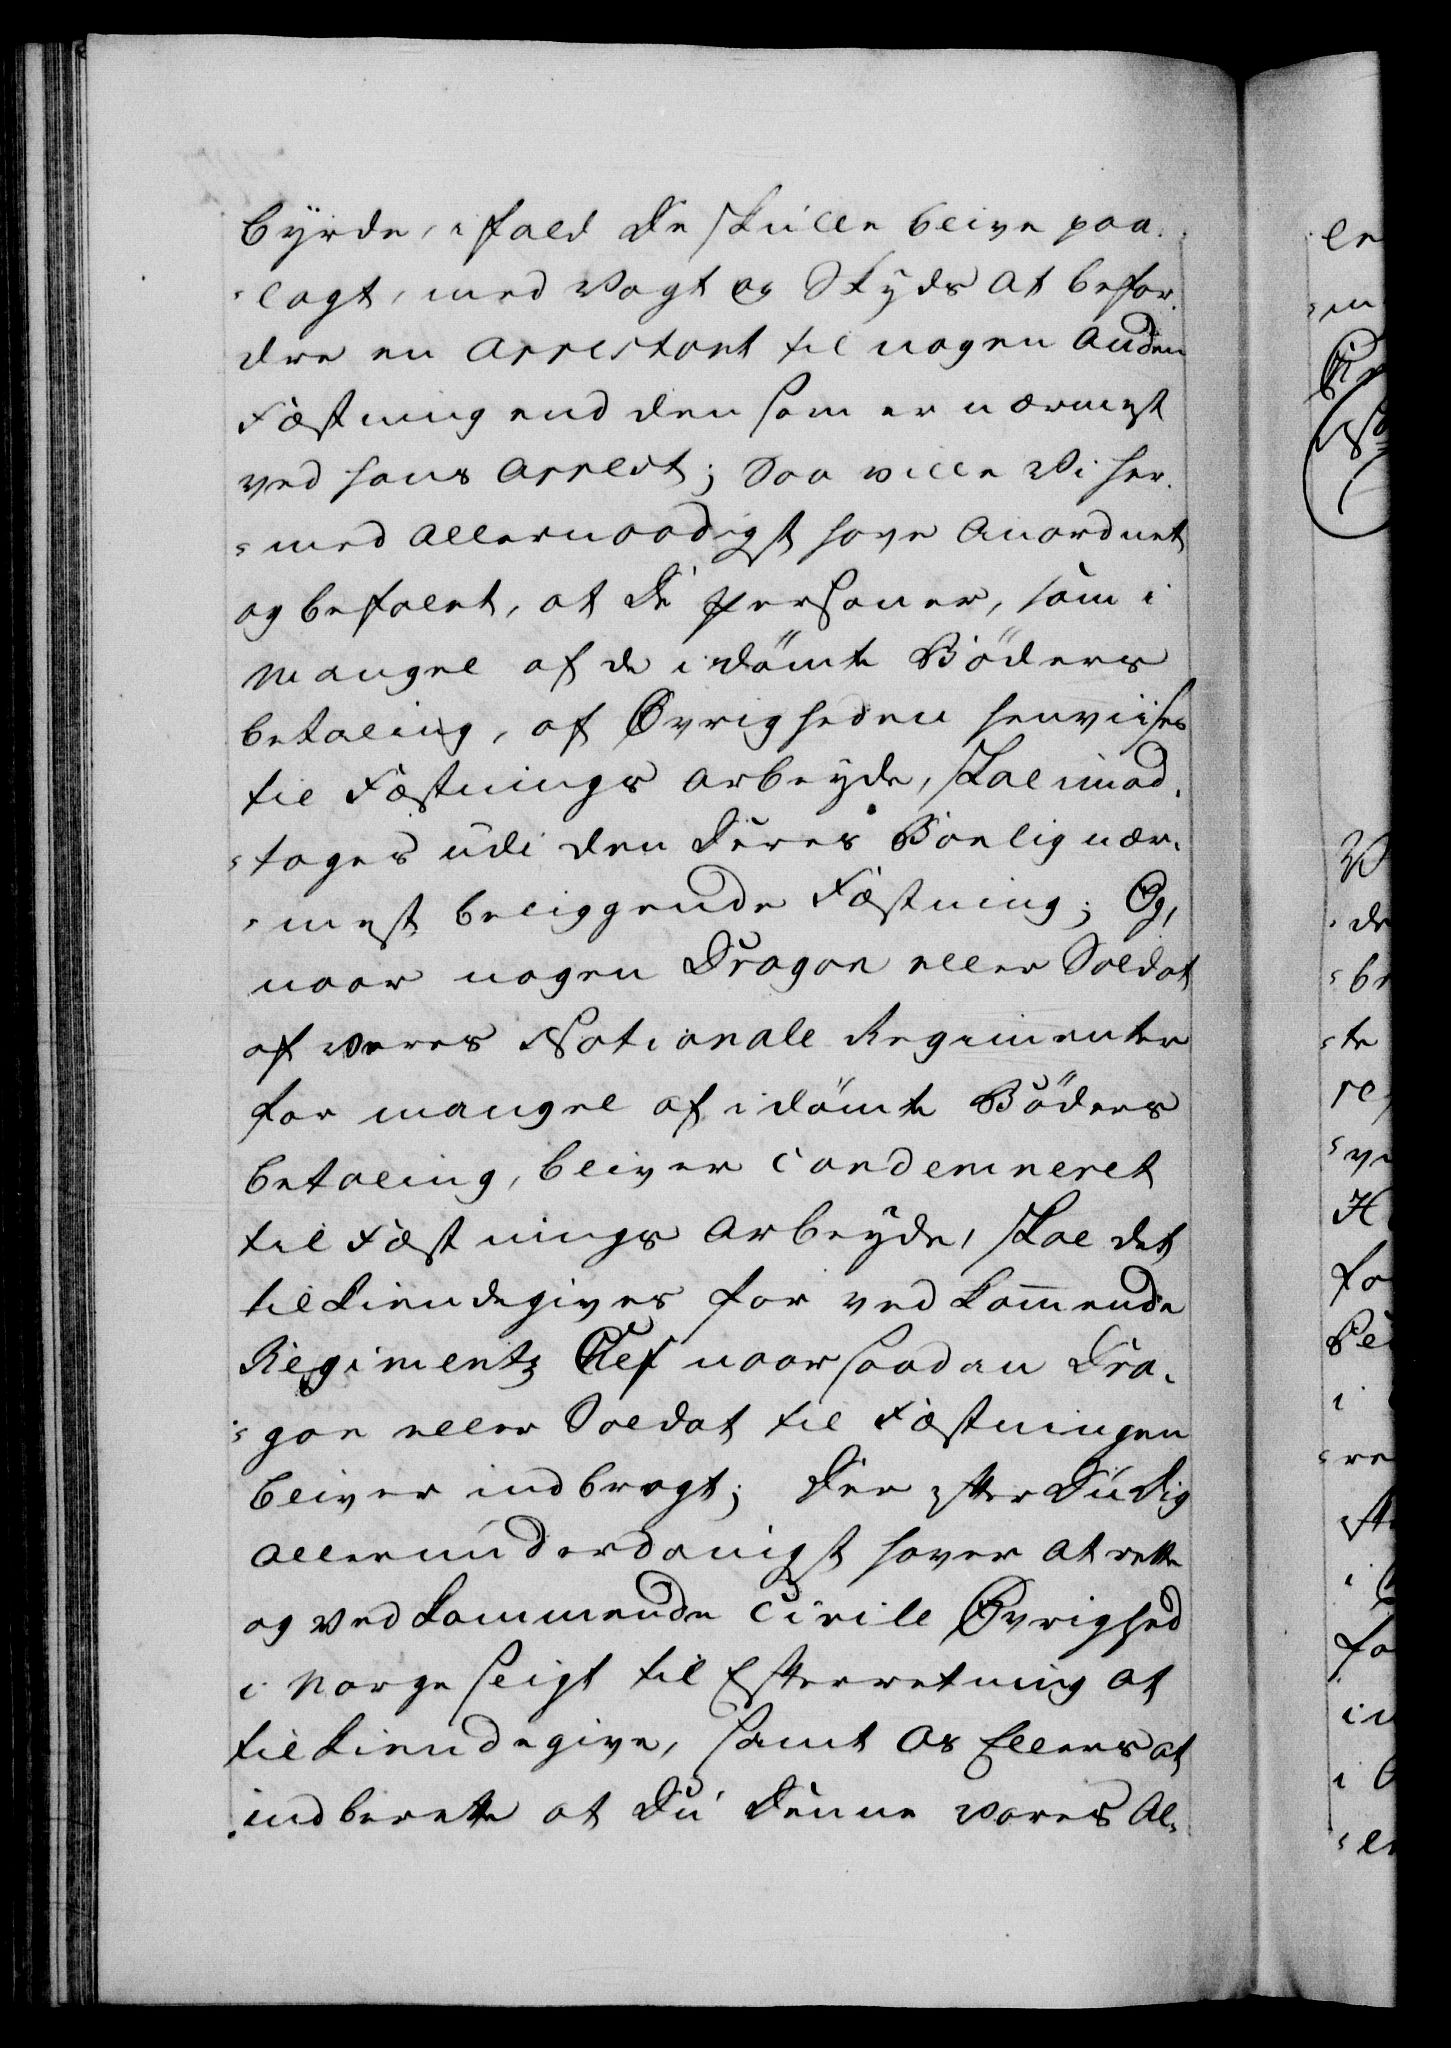 byrde, i fald de skulle blive paa-
lagt, med Vagt og Skyds at befor-
dre en Arrestant til nogen anden
Fæstning end den som er nærmest
ved hans Arrest; Saa wille Vi her-
med allernaadigst have anordnet
og befalet, at de Personer, som i
mangel af de idömte Böders
betaling, af Øvrigheden henviises
til Fæstnings arbeyde, skal imod-
tages udi den deres Boelig nær-
mest beliggende Fæstning; Og,
naar nogen Dragon eller Soldat
af vores Nationale Regimenter
for mangel af idömte Böders
betaling, bliver condemneret
til Fæstnings arbeyde, skal det
tilkiendegives for vedkom̅ende
Regiments Chef naar saadan Dra-
gon eller Soldat til Fæstningen
bliver indbragt; Der efter Du dig
allerunderdanigst haver at rette
og vedkommende Civile Øvrighed
i Norge sligt til Efterretning at
tilkiendegive, samt os Ellers at
indberette at Du denne vores Al-